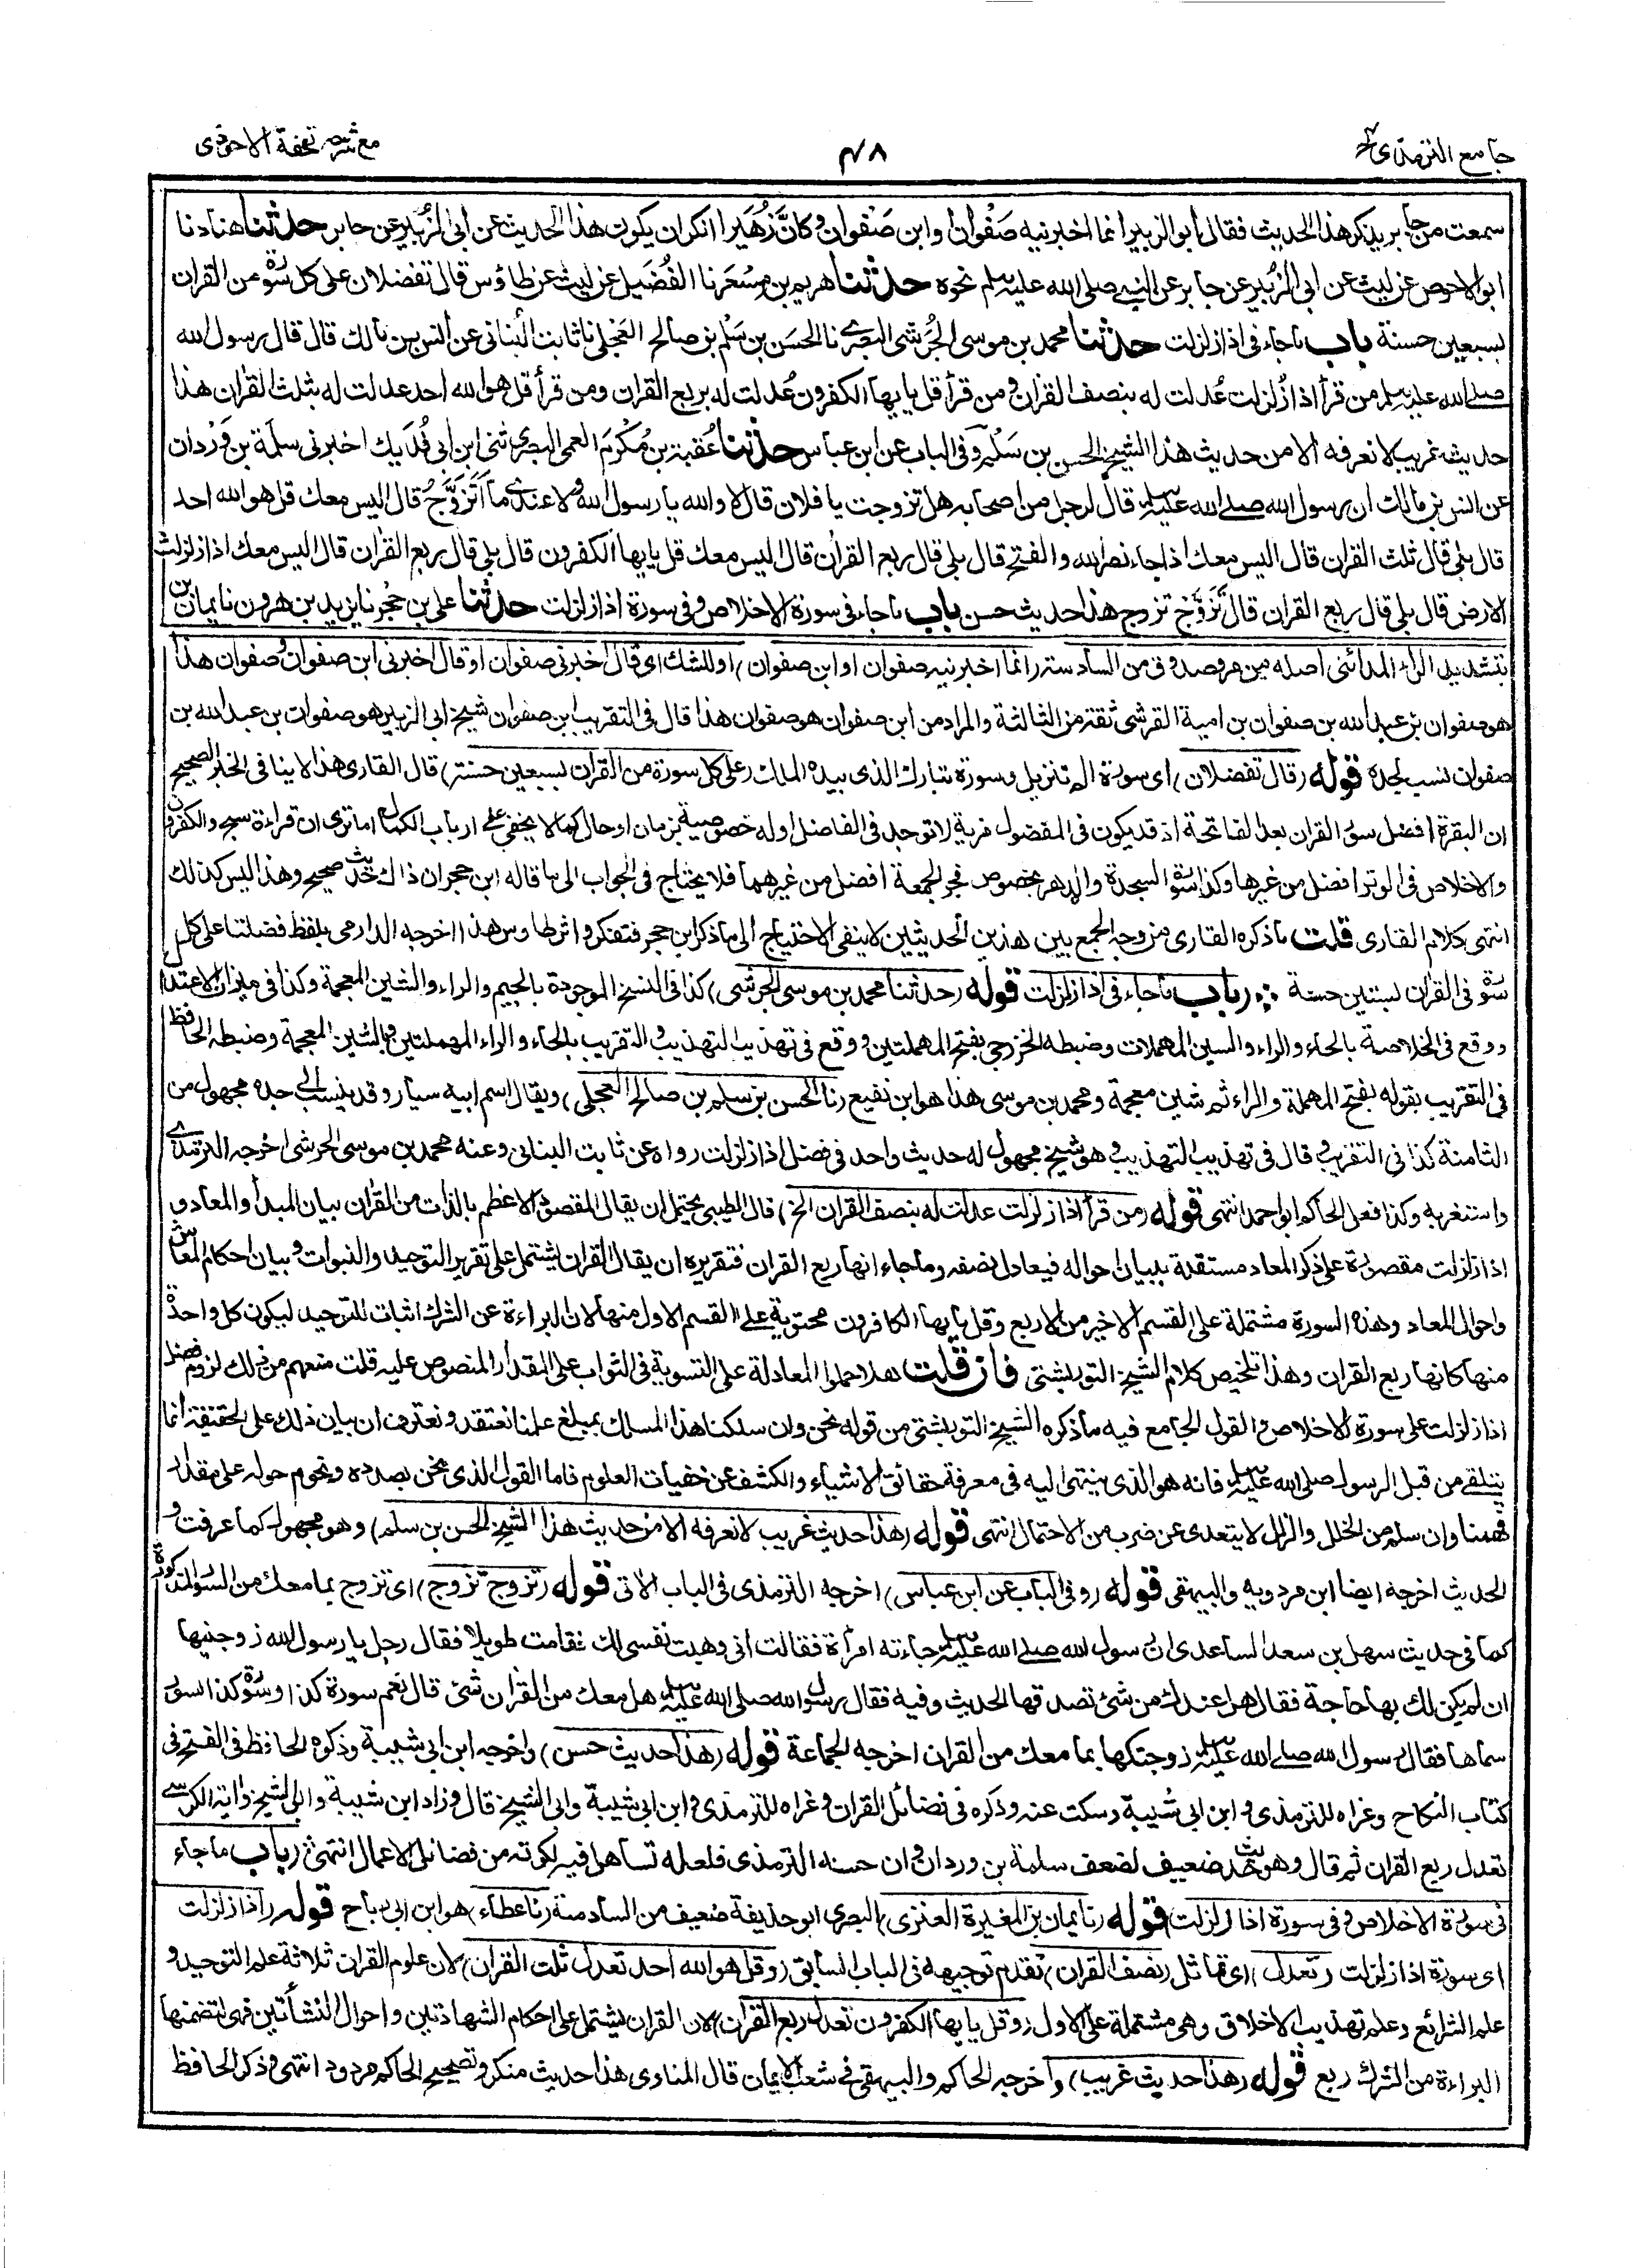 جامع الترمذى
٤٨
مع شرحه تحفة الاحوذى
سمعت من جابر يذكر هذا الحديث فقال أبو الزبير انما اخبرنيه صَفْوان أو ابن صَفْوان وكانَّ زُهَيرا انكر ان يكون هذا الحديث عن أبى الزُّبير عن جابر حدثنا هناد نا
ابو الاحوص عن ليث عن ابى الزُّبير عن جابر عن النبى صلى الله عليه وسلم نحوه حدثنا هريم بن مِسْعَر نا الفُضَيل عن ليث عن طاؤس قال تفضلان على كل سورة من القران
بسبعين حسنة باب ماجاء فى اذا زلزلت حدثنا محمد بن موسى الجُرَشى البصرى نا الحسَن بن سَلْم بن صالح العَجلى نا ثابت البُنانى عن انس بن مالك قال قال رسول الله
صلى الله عليه وسلم من قرأ اذا زُلزلت عُدلت له بنصف القران ومن قرأ قل يايها الكفرون عُدلت له بربع القران ومن قرأ قل هو الله احد عدلت له بثلث القران هذا
حديث غريب لا نعرفه الا من حديث هذا الشيخ الحسن بن سَلْم وفى الباب عن ابن عباس حدثنا عُقبة بن مُكْرَم العمى البصرى ثنى ابن ابى فُدَيك اخبرنى سلَمة بن وَرْدان
عن انس بن مالك ان رسول الله صلى الله عليه وسلم قال لرجل من اصحابه هل تزوجت يا فلان قال لا والله يا رسول الله ولا عندى ما اَتَزَوَّجُ قال اليس معك قل هو الله احد
قال بلى قال ثلث القران قال اليس معك اذا جاء نصر الله والفتح قال بلى قال ربع القران قال اليس معك قل يايها الكفرون قال بلى قال ربع القران قال اليس معك اذا زلزلت
الارض قال بلى قال ربع القران قال تَزَوَّج تزوج هذا حديث حسن باب ماجاء فى سورة الاخلاص وفى سورة اذا زلزلت حدثنا على بن حُجْر نا يزيد بن هرون نا يمان بن
بتشديد الراء المدائنى اصله من مرو صدوق من السادسة (انما اخبرنيه صفوان او ابن صفوان) او للشك اى قال اخبرنى صفوان او قال اخبرنى ابن صفوان وصفوان هذا
هو صفوان بن عبد الله بن صفوان بن امية القرشى ثقة من الثالثة والمراد من ابن صفوان هو صفوان هذا قال فى التقريب ابن صفوان شيخ ابى الزبير هو صفوان بن عبد الله بن
صفوان نسب لجده قوله (قال تفضلان) اى سورة الم تنزيل وسورة تبارك الذى بيده الملك (على كل سورة من القران بسبعين حسنة) قال القارى هذا لا ينافى الخبر الصحيح
ان البقرة افضل سور القران بعد الفاتحة اذ قد يكون فى المفضول مزية لا توجد فى الفاضل اوله خصوصية بزمان او حال كما لا يخفى على ارباب الكمال اما ترى ان قراءة سبح والكفرون
والاخلاص فى الوتر افضل من غيرها وكذا سورة السجدة والدهر بخصوص فجر الجمعة افضل من غيرهما فلا يحتاج فى الجواب الى ما قاله ابن حجر ان ذاك حديث صحيح وهذا ليس كذلك
انتهى كلام القارى قلت ما ذكره القارى من وجه الجمع بين هذين الحديثين لا ينفى الاحتياج الى ما ذكر ابن حجر فتفكر واثر طاوس هذا اخرجه الدارمى بلفظ فضلتا على كل
سورة فى القران بستين حسنة (باب ماجاء فى اذا زلزلت قوله (حدثنا محمد بن موسى الجرشى) كذا فى النسخ الموجودة بالجيم والراء والشين المعجمة وكذا فى ميزان الاعتدال
ووقع فى الخلاصة بالحاء والراء والسين المهملات وضبطه الخزرجى بفتح المهملتين ووقع فى تهذيب التهذيب والتقريب بالحاء والراء المهملتين وبالشين المعجمة وضبطه الحافظ
فى التقريب بقوله بفتح المهملة والراء ثم شين معجمة ومحمد بن موسى هذا هو ابن نفيع (نا الحسن بن سلم بن صالح العجلى) ويقال اسم ابيه سيار وقد ينسب الى جده مجهول من
الثامنة كذا فى التقريب وقال فى تهذيب التهذيب هو شيخ مجهول له حديث واحد فى فضل اذا زلزلت رواه عن ثابت البنانى وعنه محمد بن موسى الحرشى اخرجه الترمذى
واستغربه وكذا فعل الحاكم ابو احمد انتهى قوله (من قرأ اذا زلزلت عدلت له بنصف القران الخ) قال الطيبى يحتمل ان يقال المقصود الاعظم بالذات من القران بيان المبدأ والمعاد و
اذا زلزلت مقصورة على ذكر المعاد مستقلة ببيان احواله فيعادل نصفه وماجاء انها ربع القران فتقريره ان يقال القران يشتمل على تقرير التوحيد والنبوات وبيان احكام المعاش
واحوال المعاد وهذه السورة مشتملة على القسم الاخير من الاربع وقل يايها الكافرون محتوية على القسم الاول منها لان البراءة عن الشرك اثبات للتوحيد ليكون كل واحدة
منها كانها ربع القران وهذا تلخيص كلام الشيخ التوربشتى فان قلت هلا حملوا المعادلة على التسوية فى الثواب على المقدار المنصوص عليه قلت منعهم من ذلك لزوم فضل
اذا زلزلت على سورة الاخلاص والقول الجامع فيه ما ذكره الشيخ التوربشتى من قوله نحن وان سلكنا هذا المسلك بمبلغ علمنا نعتقد ونعترف ان بيان ذلك على الحقيقة انما
يتلقى من قبل الرسول صلى الله عليه وسلم فانه هو الذى ينتهى اليه فى معرفة حقائق الاشياء والكشف عن خفيات العلوم فاما القول الذى نحن بصدده ونحوم حوله على مقدار
فهمنا وان سلم من الخلل والزلل لا يتعدى عن ضرب من الاحتمال انتهى قوله (هذا حديث غريب لا نعرفه الا من حديث هذا الشيخ الحسن بن سلم) وهو مجهول كما عرفت و
الحديث اخرجه ايضا ابن مردويه والبيهقى قوله (وفى الباب عن ابن عباس) اخرجه الترمذى فى الباب الاتى قوله (تزوج تزوج) اى تزوج بما معك من السور المذكورة
كما فى حديث سهل بن سعد الساعدى ان رسول الله صلى الله عليه وسلم جاءته امرأة فقالت انى وهبت نفسى لك فقامت طويلا فقال رجل يا رسول الله زوجنيها
ان لم يكن لك بها حاجة فقال هل عندك من شئ تصدقها الحديث وفيه فقال رسول الله صلى الله عليه وسلم هل معك من القران شئ قال نعم سورة كذا وسورة كذا لسور
سماها فقال رسول الله صلى الله عليه وسلم زوجتكها بما معك من القران اخرجه الجماعة قوله (هذا حديث حسن) واخرجه ابن ابى شيبة وذكره الحافظ فى الفتح فى
كتاب النكاح وعزاه للترمذى وابن ابى شيبة وسكت عنه وذكره فى فضائل القران وعزاه للترمذى وابن ابى شيبة وابى الشيخ قال وزاد ابن شيبة وابى الشيخ واية الكرسى
تعدل ربع القران ثم قال وهو حديث ضعيف لضعف سلمة بن وردان وان حسنه الترمذى فلعله تساهل فيه لكونه من فضائل الاعمال انتهى (باب ماجاء
فى سورة الاخلاص وفى سورة اذا زلزلت) قوله (نا يمان بن المغيرة العنزى) البصرى ابو حذيفة ضعيف من السادسة (نا عطاء) هو ابن ابى رباح قوله (اذا زلزلت
اى سورة اذا زلزلت (تعدل) اى تماثل (نصف القران) تقدم توجيهه فى الباب السابق (وقل هو الله احد تعدل ثلث القران) لان علوم القران ثلاثة علم التوحيد و
علم الشرائع وعلم تهذيب الاخلاق وهى مشتملة على الاول (وقل يايها الكفرون تعدل ربع القران) لان القران يشتمل على احكام الشهادتين واحوال النشأتين فهى لتضمنها
البراءة من الشرك ربع قوله (هذا حديث غريب) وأخرجه الحاكم والبيهقى فى شعب الايمان قال المناوى هذا حديث منكر وتصحيح الحاكم مردود انتهى وذكر الحافظ